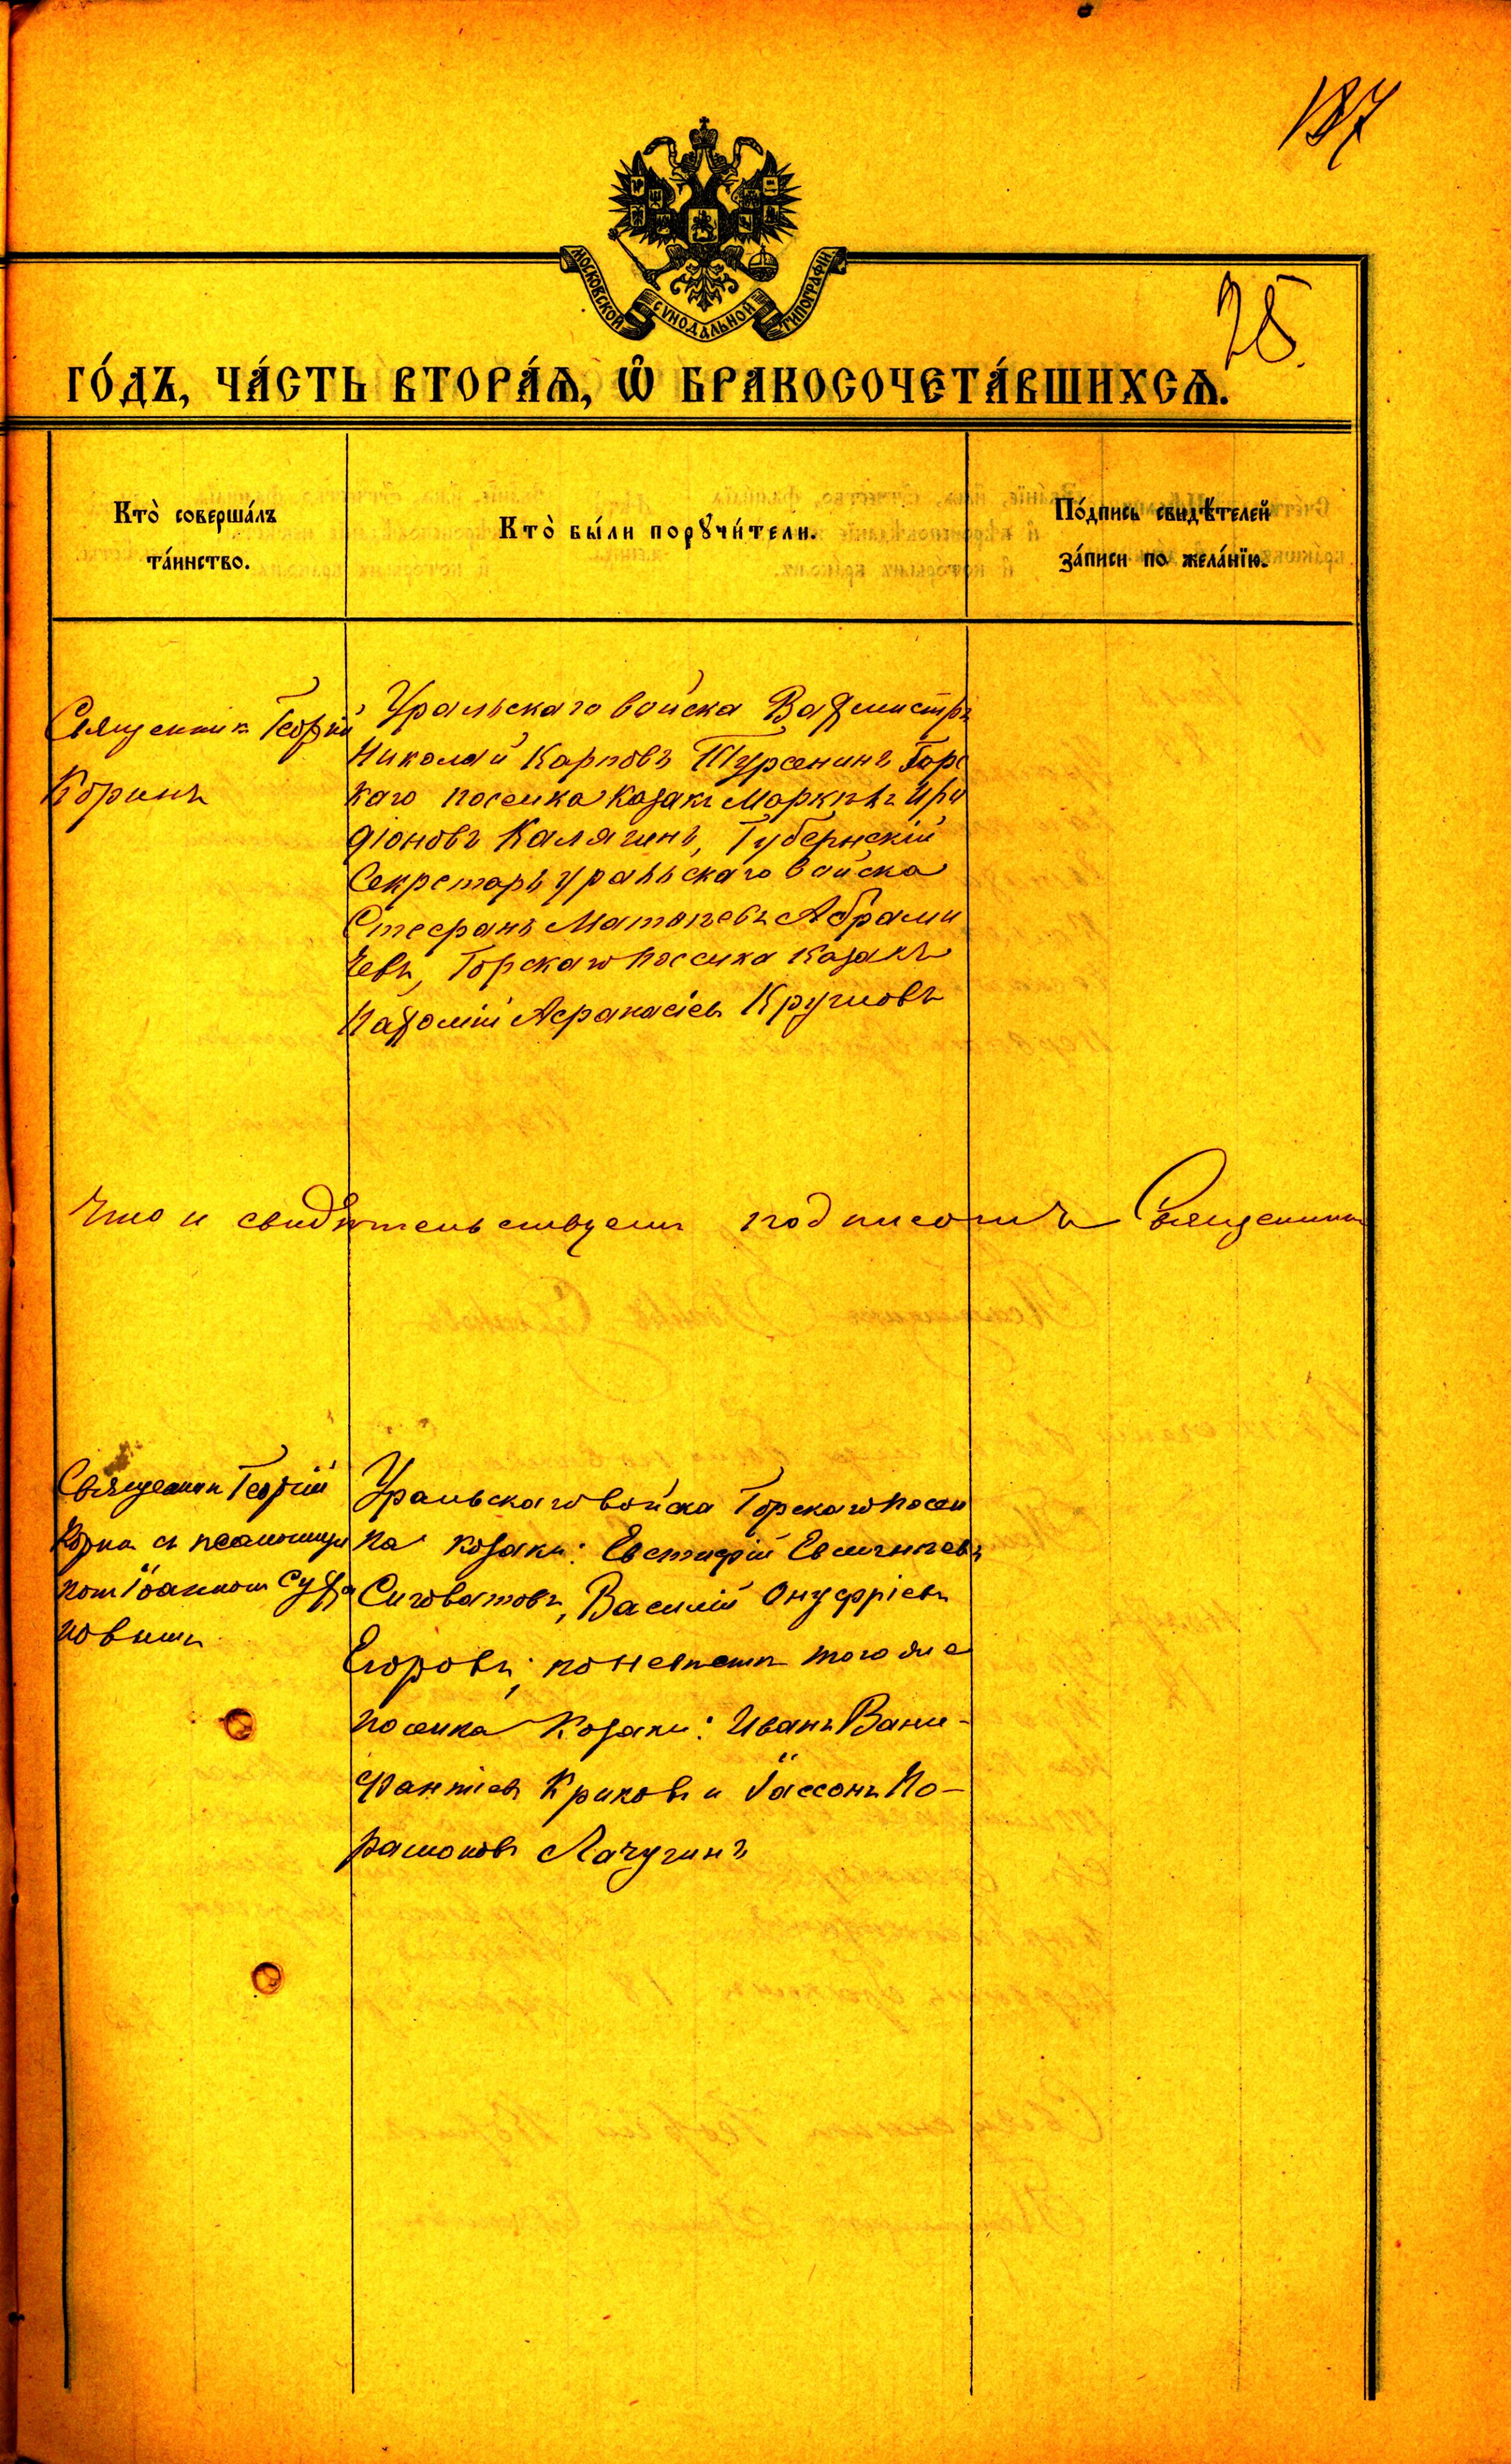 187
МОСКОВСКОЙ СУНОДАЛЬНОЙ ТИПОГРАФІИ.
25.
ГО́ДЪ, ЧА́СТЬ ВТОРА́Ѧ, Ѡ҆ БРАКОСОЧЕТА́ВШИХСѦ.
Кто̀ соверша́лъ
та́инство.
Кто̀ бы́ли порꙋчи́тели.
По́дпись свидѣ́телей
за́писи по жела́нїю.
Священникъ Георгій
Коринъ
Уральскаго войска Вахмистръ
Николай Карповъ Турсенинъ Горс
каго поселка казакъ Маркелъ Ири
діоновъ Калягинъ, Губернскій
Секретарь уральскаго войска
Стефанъ Матвѣевъ Абрами
чевъ, Горскаго поселка казакъ
Афанасіевъ Кругловъ
Что и свидѣтельствуемъ подписомъ Священникъ
Священник Георгій
Корин съ псаломщи
ком Іоанном
Уральскаго войска Горскаго посел
ка козаки: Евстифій Евсигнѣевъ
Сиговатовъ, Василій Онуфріевъ
Егоровъ; по невѣстѣ того же
поселка козаки: Иванъ Вани-
фантіев Криков и Іассонъ По-
рамонов Лачугинъ